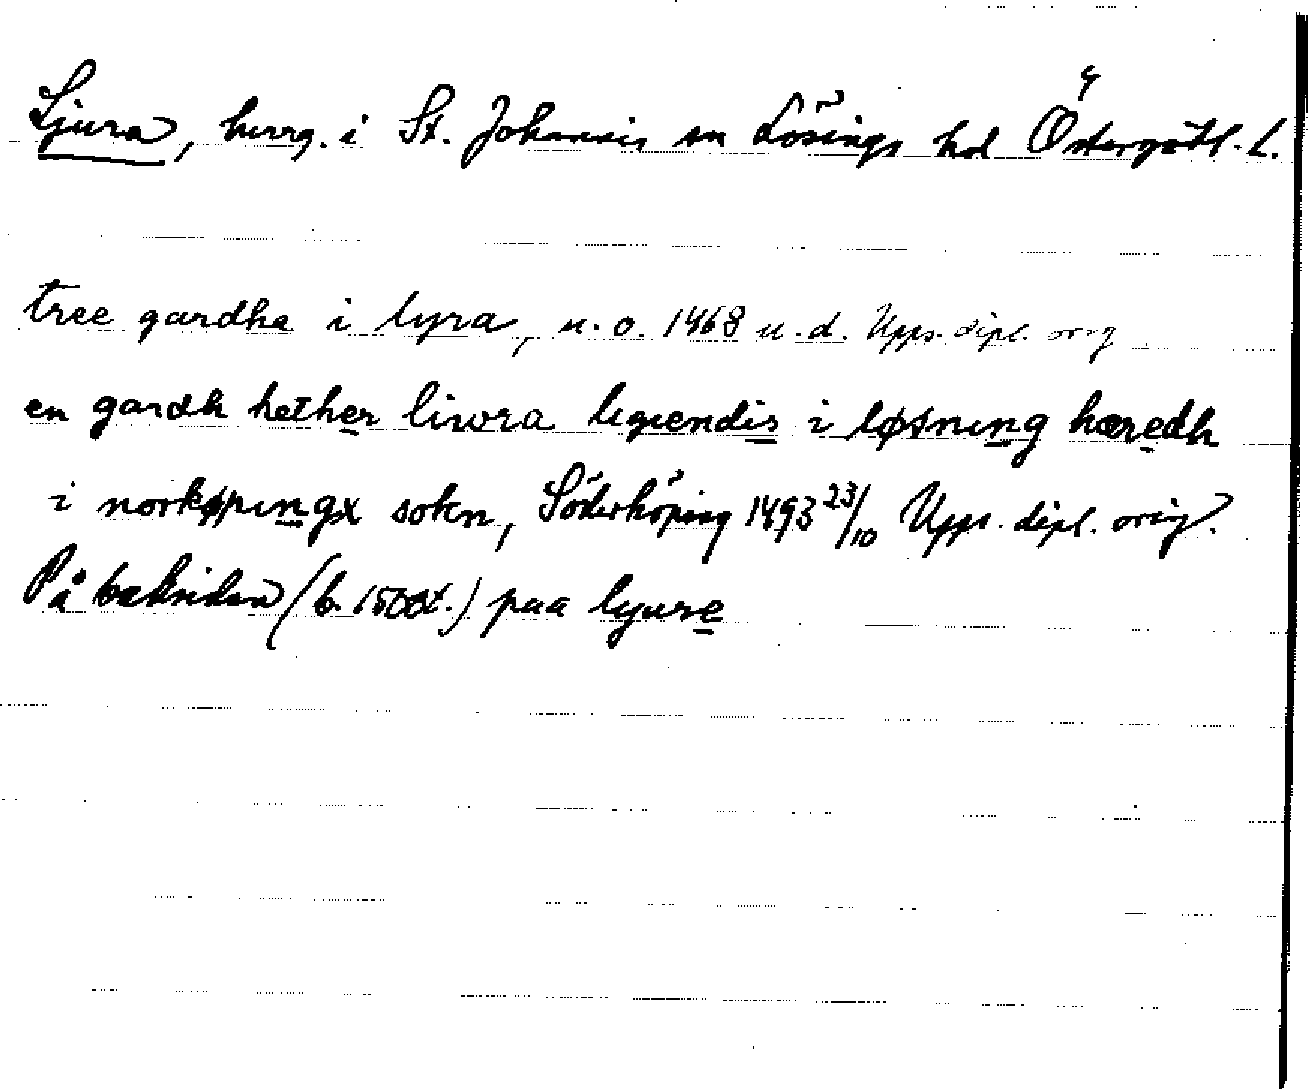 Ljura, herrg. i St. Johannis sn Lösings hd Östergötl. L.
tree gardha i lyra, u. o. 1468 u. d. Upps. dipl. orig
en gardh hether liwra ligiendis i løsning hæredh
i norkøpingx sokn, Söderköping 1493 23/10 Upps. dipl. orig.
På baksidan (b. 1500t.) paa lyure